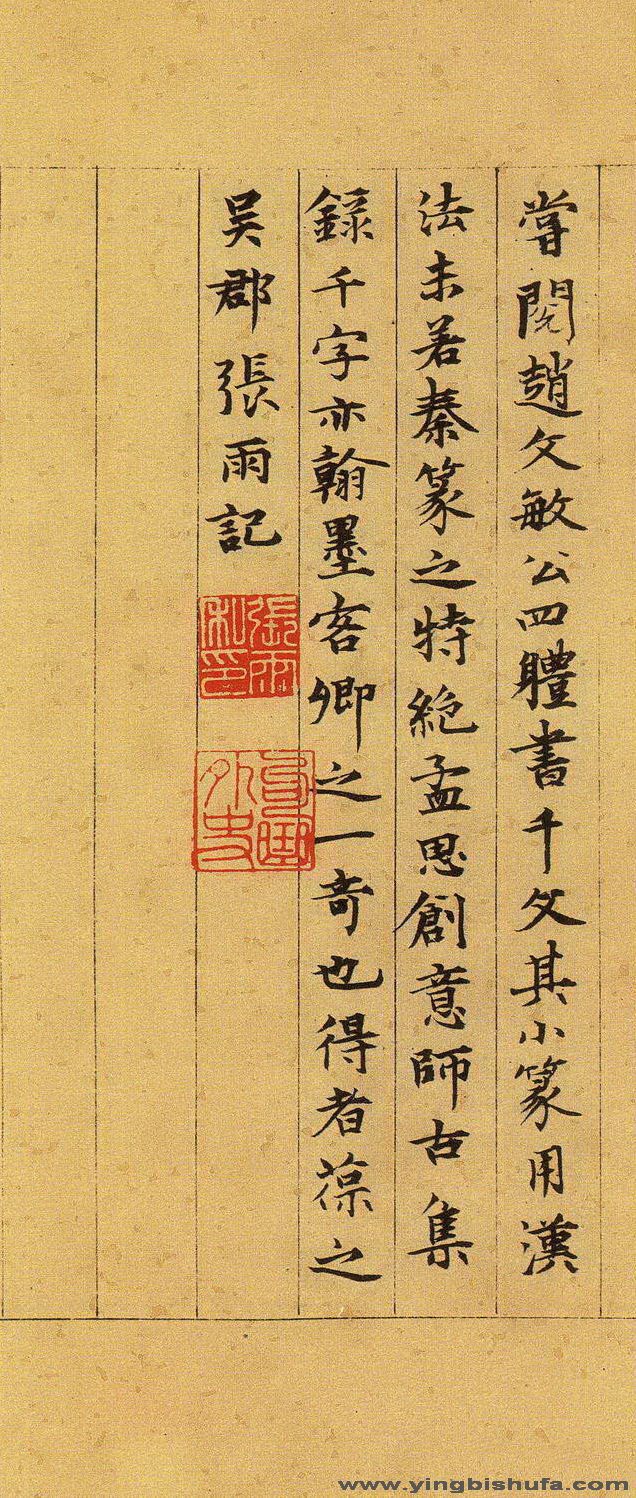 嘗閱趙文敏公四體書千文其小篆用漢
法未若秦篆之特絕孟思創意師古集
錄千字亦翰墨客卿之一奇也得者葆之
吳郡張雨記
張雨私印
句曲外史
www.yingbishufa.com